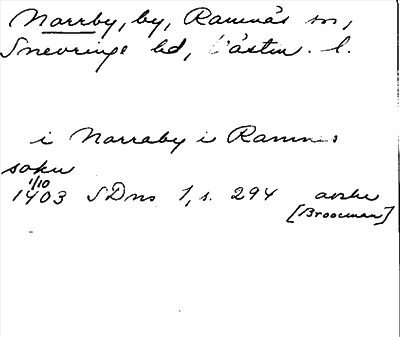 Norrby, by, Ramnäs sn,
Snevringe hd, Västm. l.
i Norraby i Ramnes
sokn
1/10
1403 SDns 1, s. 294 avskr
[Broocman]